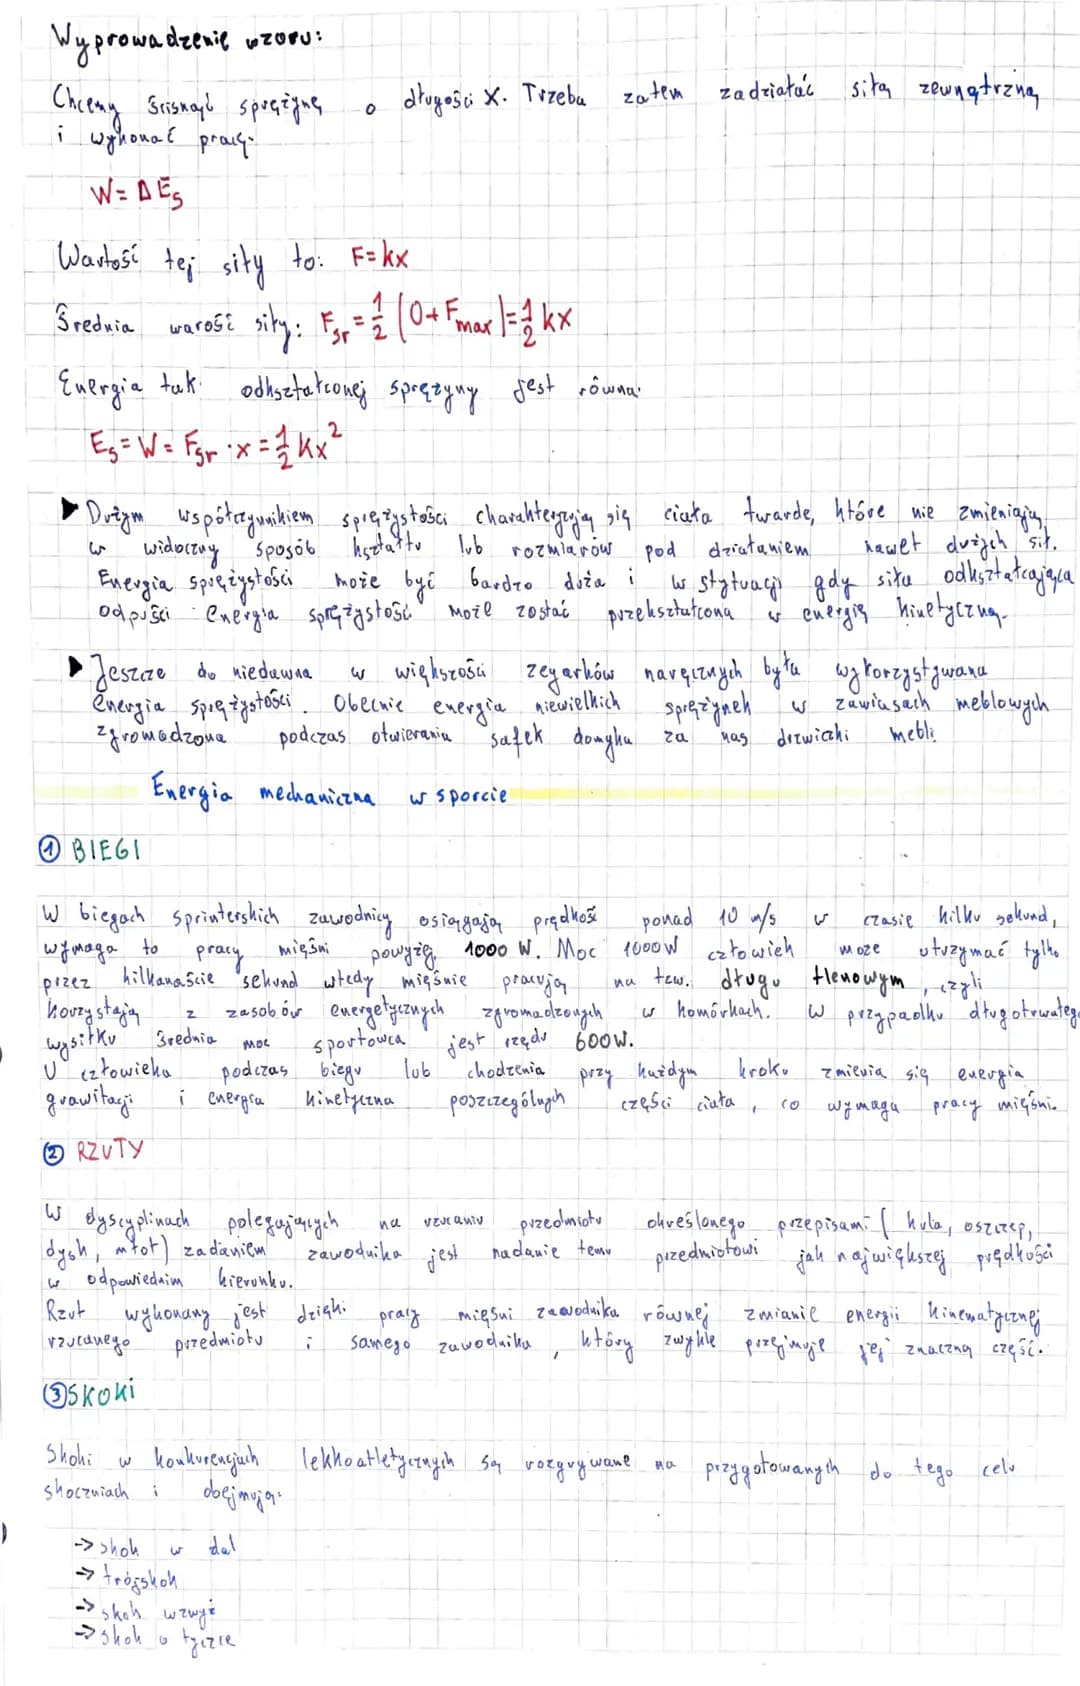 Wyprowadzenie wzoru:
Chcemy ścisnąć sprężynę o długości x. Trzeba zatem zadziałać siłą zewnątrzną
i wykonać pracę.
W = ΔEs
Wartość tej siły to: F = kx
Średnia warość siły: Fśr = 1/2 (0 + Fmax) = 1/2 kx
Energia tak odkształconej sprężyny jest równa:
Es = W = Fśr · x = 1/2 kx²
▶ Dużym współczynnikiem sprężystości charakteryzują się ciała twarde, które nie zmieniają
w widoczny sposób kształtu lub rozmiarów pod działaniem nawet dużych sił.
Energia sprężystości może być bardzo duża i w stytuacji gdy siła odkształcająca
odpuści energia sprężystość może zostać przekształcona w energię kinetyczną.
▶ Jeszcze do niedawna w większości zegarków naręcznych była wykorzystywana
energia sprężystości. Obecnie energia niewielkich sprężynek w zawiasach meblowych
zgromadzona podczas otwierania szafek domyka za nas drzwiczki mebli
Energia mechaniczna w sporcie
① BIEGI
W biegach sprinterskich zawodnicy osiągają prędkość ponad 10 m/s w czasie kilku sekund,
wymaga to pracy mięśni powyżej 1000 W. Moc 1000W człowiek może utrzymać tylko
przez kilkanaście sekund wtedy mięśnie pracują na tzw. długu tlenowym, czyli
korzystają z zasobów energetycznych zgromadzonych w komórkach. W przypadku długotrwałego
wysiłku średnia moc sportowca jest rzędu 600W.
U człowieka podczas biegu lub chodzenia przy każdym kroku zmienia się energia
grawitacji i energia kinetyczna poszczególnych części ciała, co wymaga pracy mięśni.
② RZUTY
W dyscyplinach polegających na rzucaniu przedmiotu określonego przepisami (kula, oszczep,
dysk, młot) zadaniem zawodnika jest nadanie temu przedmiotowi jak największej prędkości
w odpowiednim kierunku.
Rzut wykonany jest dzięki pracy mięśni zawodnika równej zmianie energii kinematycznej
rzucanego przedmiotu i samego zawodnika, który zwykle przejmuje jej znaczną część.
③ SKOKI
Skoki w konkurencjach lekkoatletycznych są rozgrywane na przygotowanych do tego celu
skoczniach i obejmują:
-> skok w dal
-> trójskok
-> skok wzwyż
-> skok o tyczce